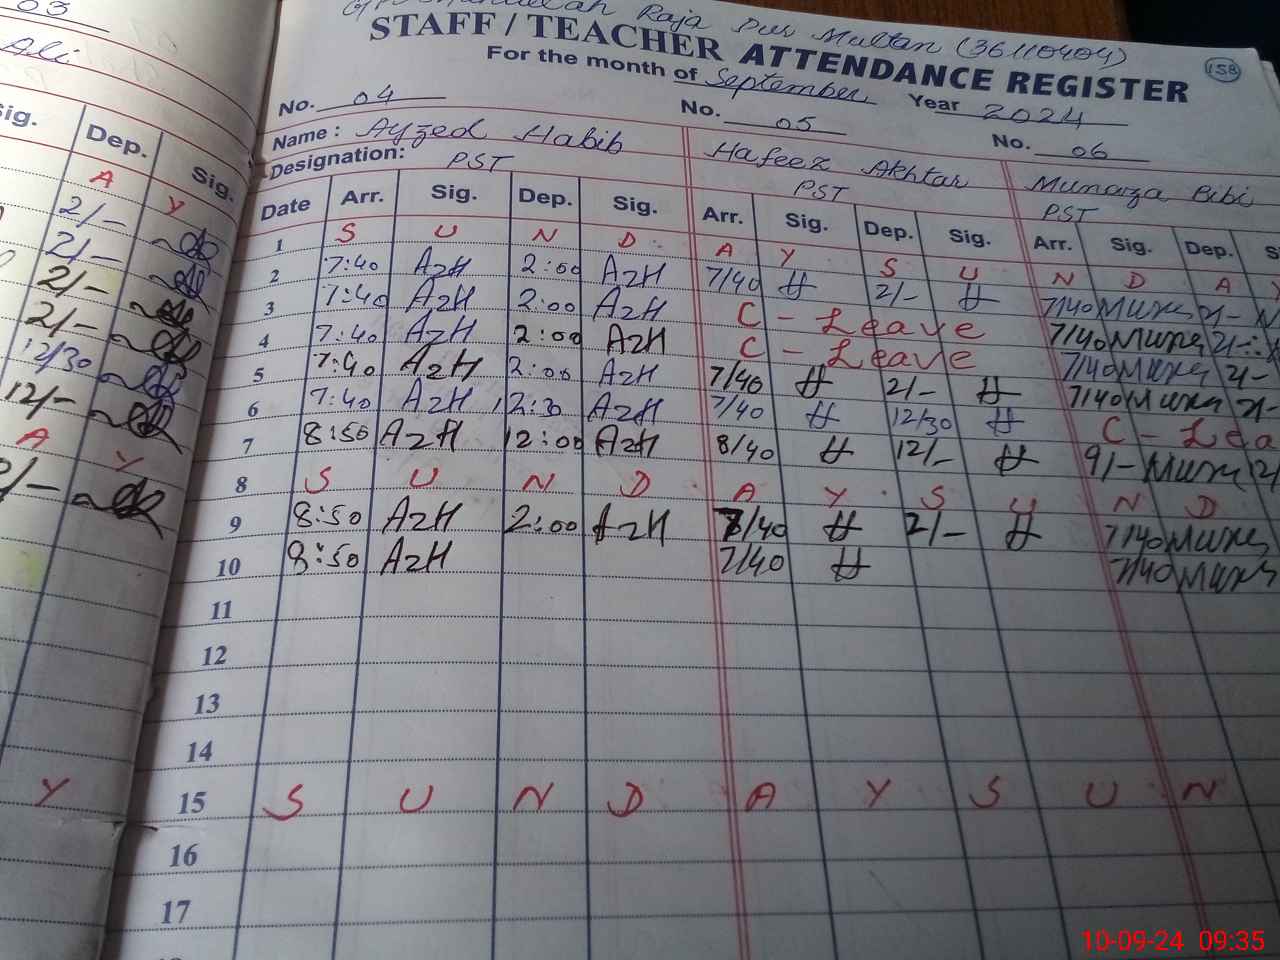 03
Ali
Sig. Dep. Sig.
A Y
2/-
2/-
2/-
2/-
12/30
12/-
A Y
2/-
Y
Raja Pur Multan (36110404)
STAFF / TEACHER ATTENDANCE REGISTER 158
For the month of September Year 2024
No. 04 No. 05 No. 06
Name: Ayzed Habib Hafeez Akhtar Munaza Bibi
Designation: PST PST PST
Date Arr. Sig. Dep. Sig. Arr. Sig. Dep. Sig. Arr. Sig. Dep. S
1 S U N D A Y S U N D A Y
2 7:40 AzH 2:00 AzH 7/40 H 2/- H 7/40 2/-
3 7:40 AzH 2:00 AzH C - Leave 7/40 2/-
4 7:40 AzH 2:00 AzH C - Leave 7/40 2/-
5 7:40 AzH 2:00 AzH 7/40 H 2/- H 7/40 2/-
6 7:40 AzH 12:30 AzH 7/40 H 12/30 H C - Lea
7 8:50 AzH 12:00 AzH 8/40 H 12/- H 9/-
8 S U N D A Y S U N D
9 8:50 AzH 2:00 AzH 7/40 H 2/- H 7/40
10 8:50 AzH 7/40 H 7/40
11
12
13
14
15 S U N D A Y S U N
16
17
10-09-24 09:35